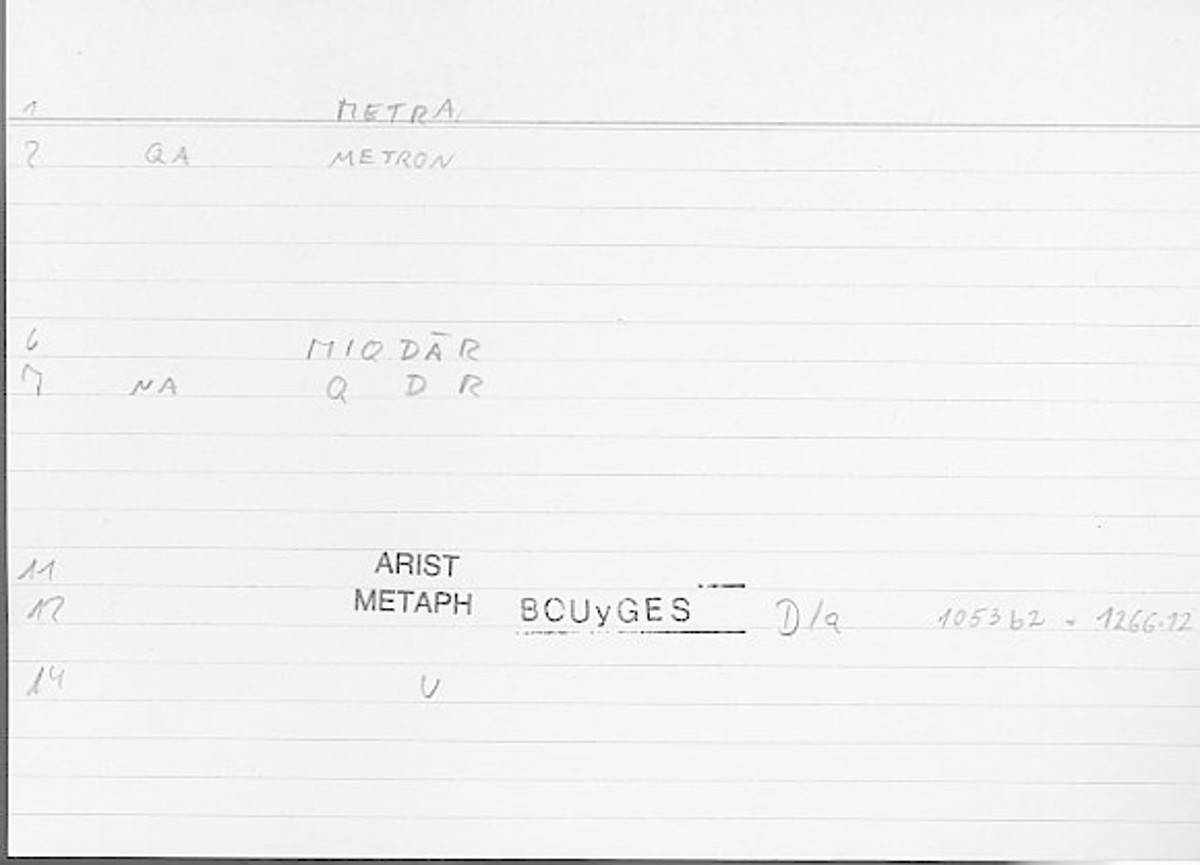 1 METRA
2 QA METRON
6 MIQDĀR
7 NA Q D R
11 ARIST
12 METAPH BOUyGES D/a 1053b2 - 1266.12
14 U